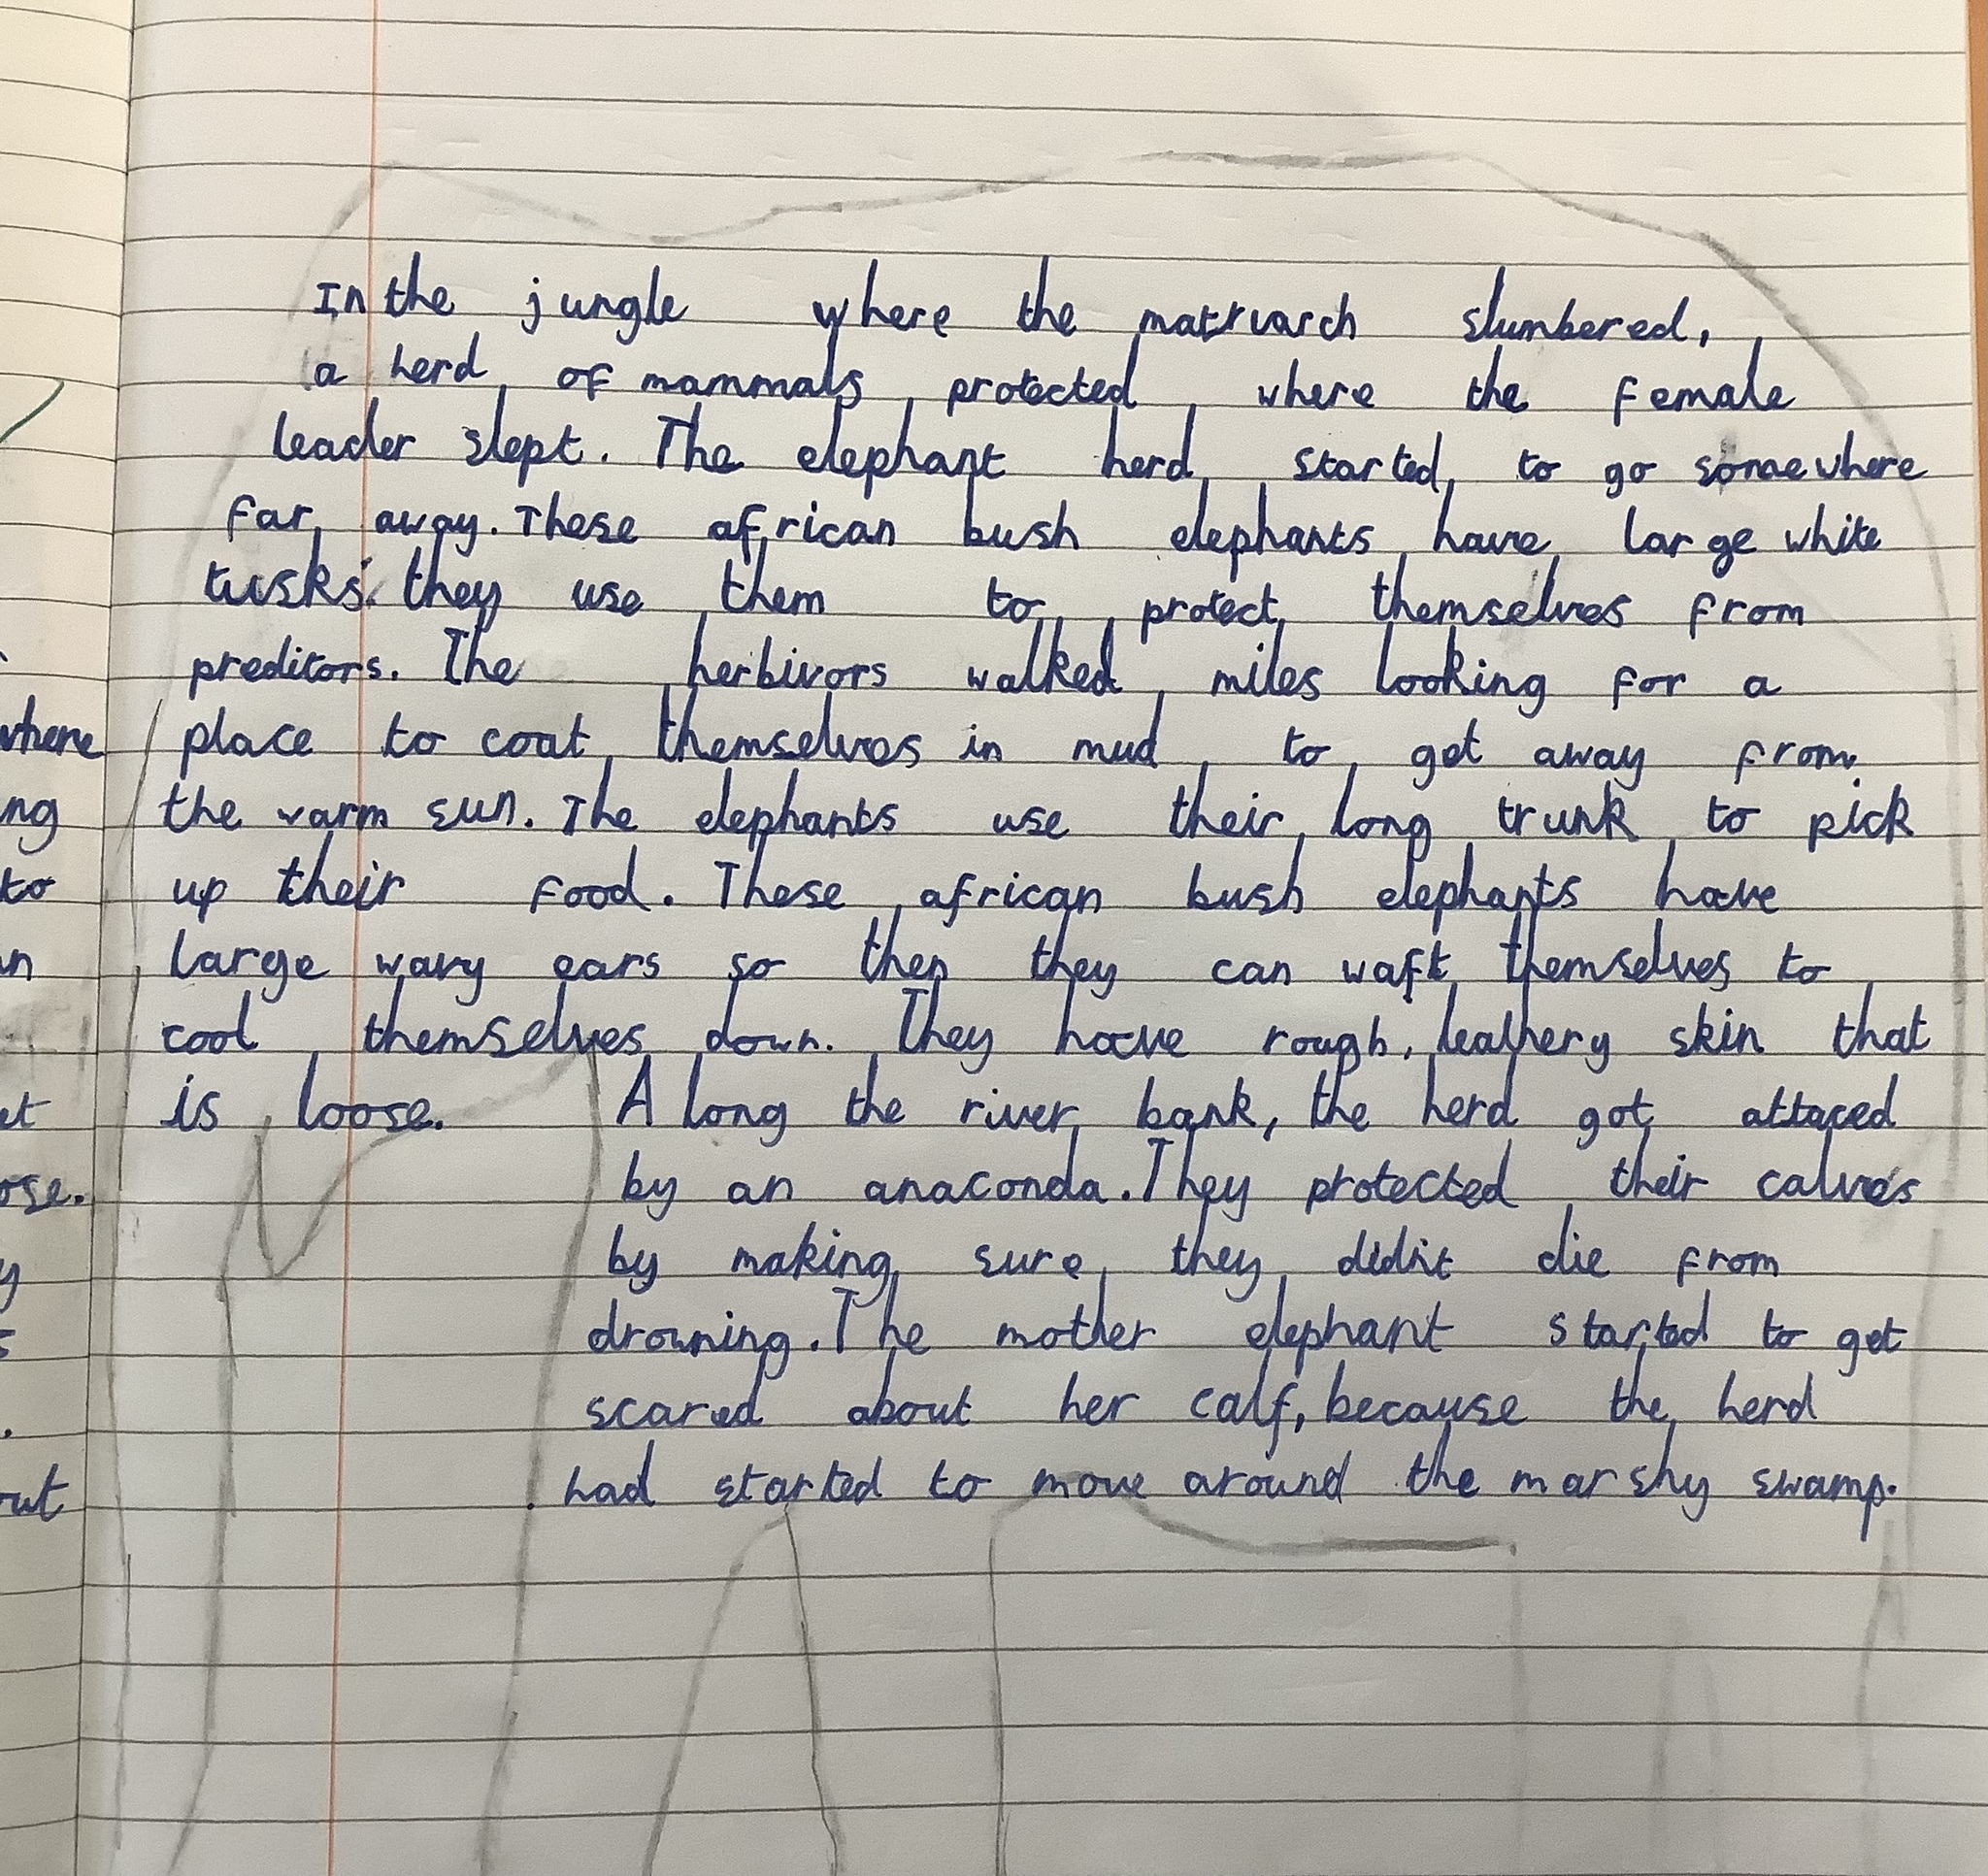 In the jungle where the matriarch slumbered,
a herd of mammals protected where the female
leader slept. The elephant herd started to go somewhere
far away. These african bush elephants have large white
tusks they use them to protect themselves from
preditors. The herbivors walked miles looking for a
where place to coat themselves in mud to get away from
ng the warm sun. The elephants use their long trunk to pick
to up their food. These african bush elephants have
n large wavy ears so then they can waft themselves to
cool themselves down. They have rough, leathery skin that
et is loose. A long the river bank, the herd got attaced
ose. by an anaconda. They protected their calves
y by making sure they didn't die from
drowning. The mother elephant started to get
scared about her calf, because the herd
out had started to move around the marshy swamp.